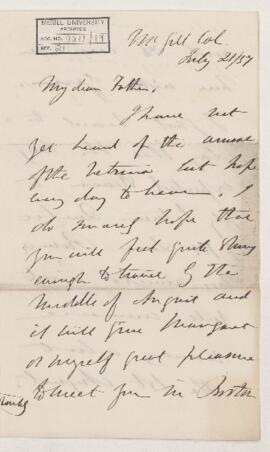 McGILL UNIVERSITY
ARCHIVES
ACC. NO.
REF.
McGill Col.
July 21/57
My dear Father,
I have not
yet heard of the arrival
of the but hope
every day to hear. I
do hope that
you will feel quite strong
enough to travel by the
middle of August and
it will give Margaret
or myself great pleasure
to meet you in Boston